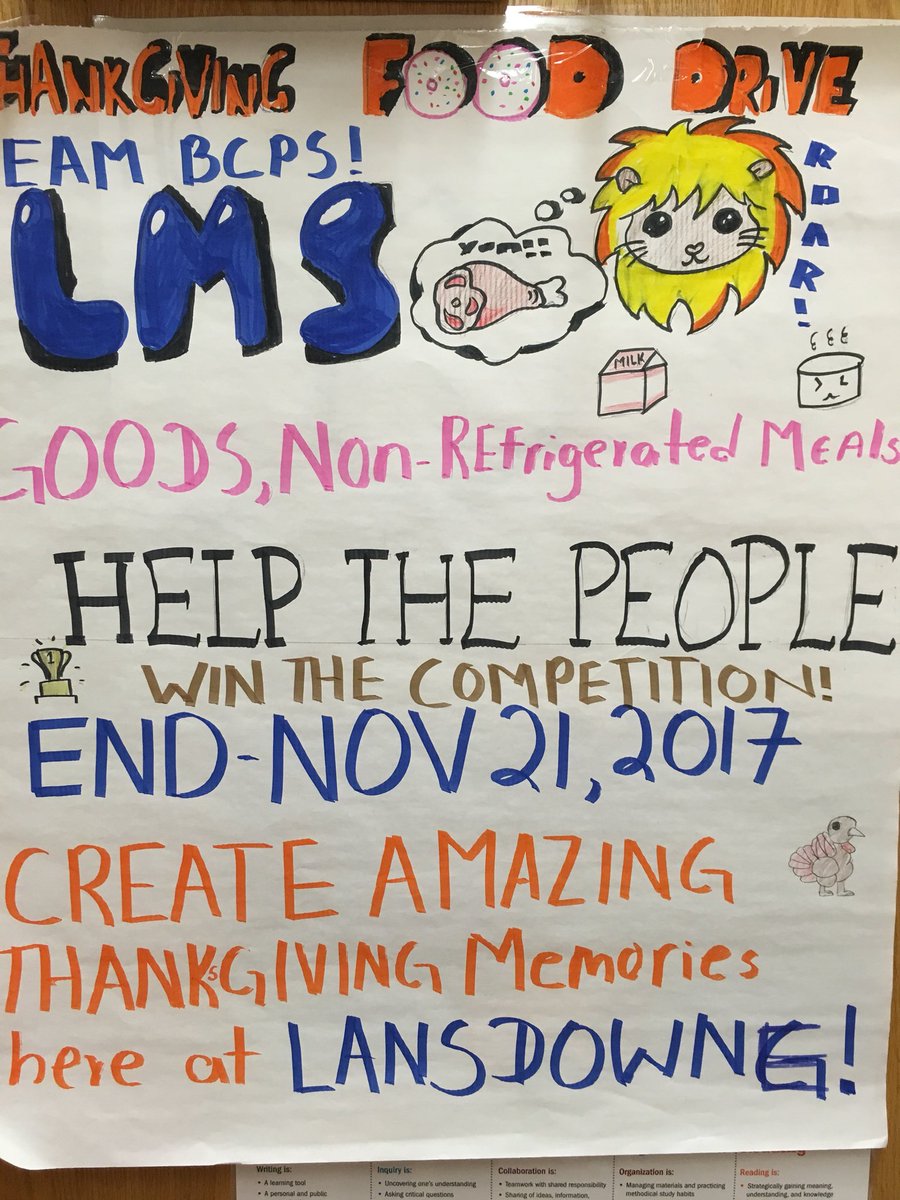 THANKGIVING FOOD DRIVE
EAM BCPS!
ROAR!
LMS
yum!!
MILK
GOODS, Non-REfrigerated MEAls
HELP THE PEOPLE
1
WIN THE COMPETITION!
END-NOV 21, 2017
CREATE AMAZING
THANKsGIVING Memories
here at LANSDOWNE!
Writing is:
• A learning tool
• A personal and public
Inquiry is:
• Uncovering one's understanding
• Asking critical questions
Collaboration is:
• Teamwork with shared responsibility
• Sharing of ideas, information,
Organization is:
• Managing materials and practicing
methodical study habits
Reading is:
• Strategically gaining meaning,
understanding, and knowle